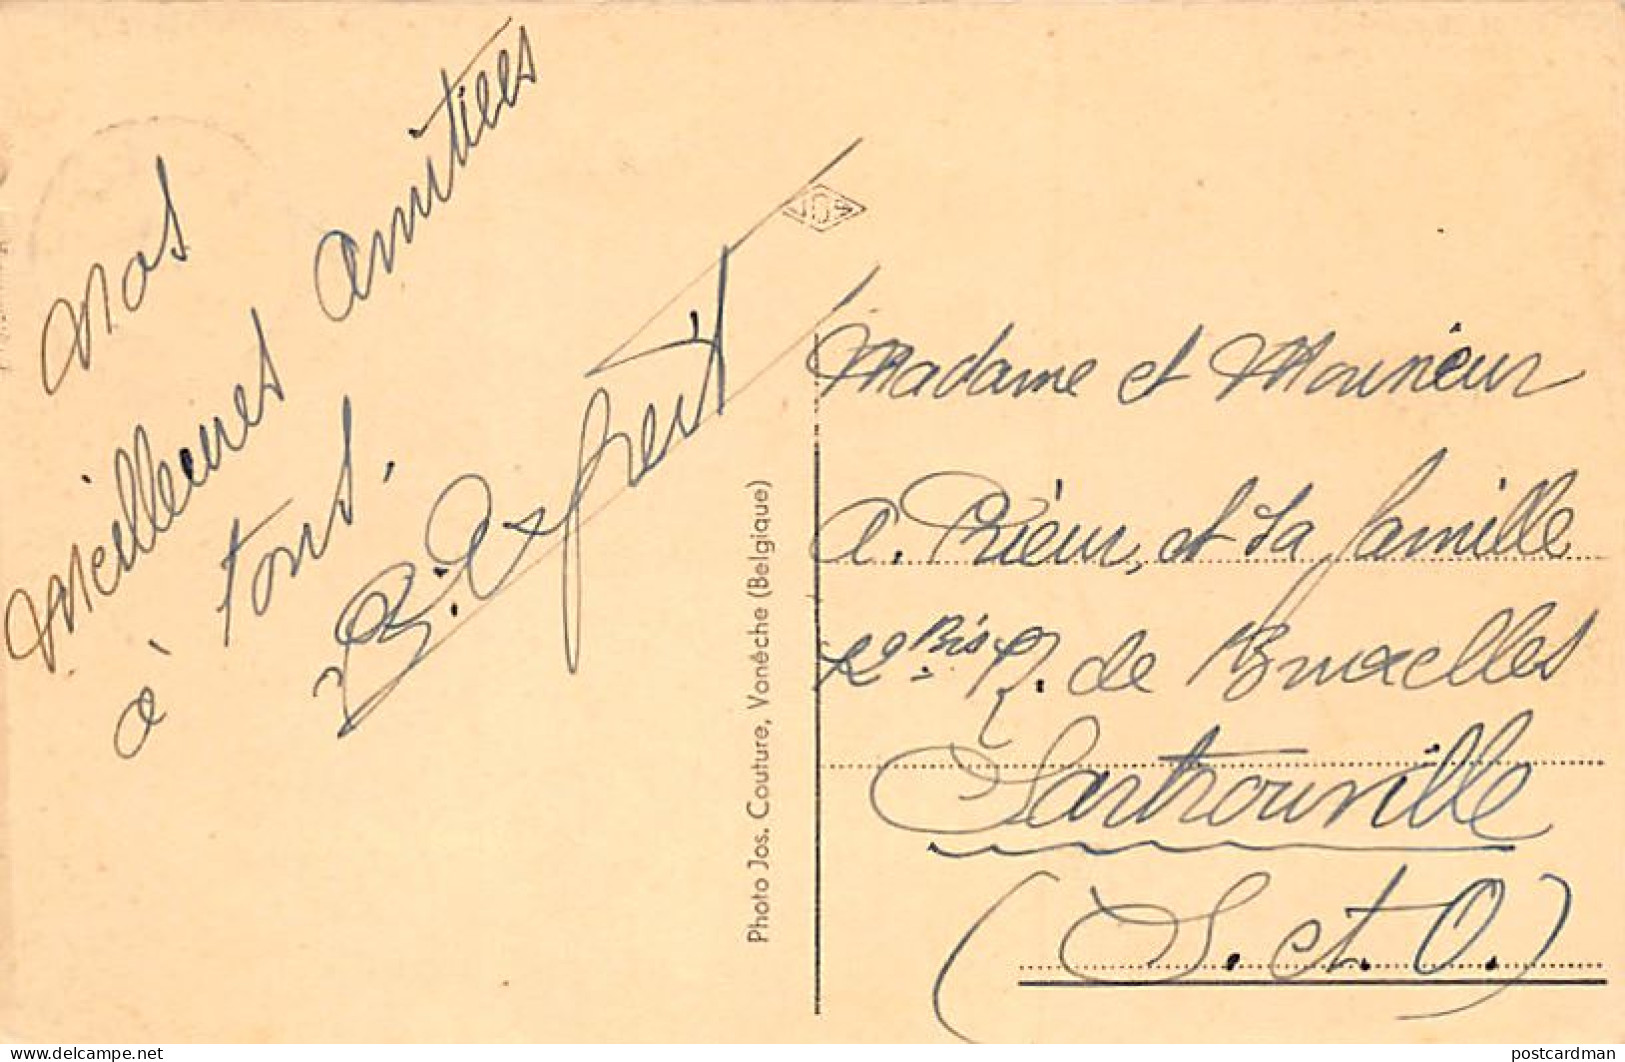 Nos
meilleures amitiées
à tous.
VOS
Photo Jos. Couture, Vonêche (Belgique)
Madame et Monsieur
A. Prieur, et sa famille
Bis R. de Bruxelles
Sartrouville
(S. et. O.)
delcampe.net
postcardman